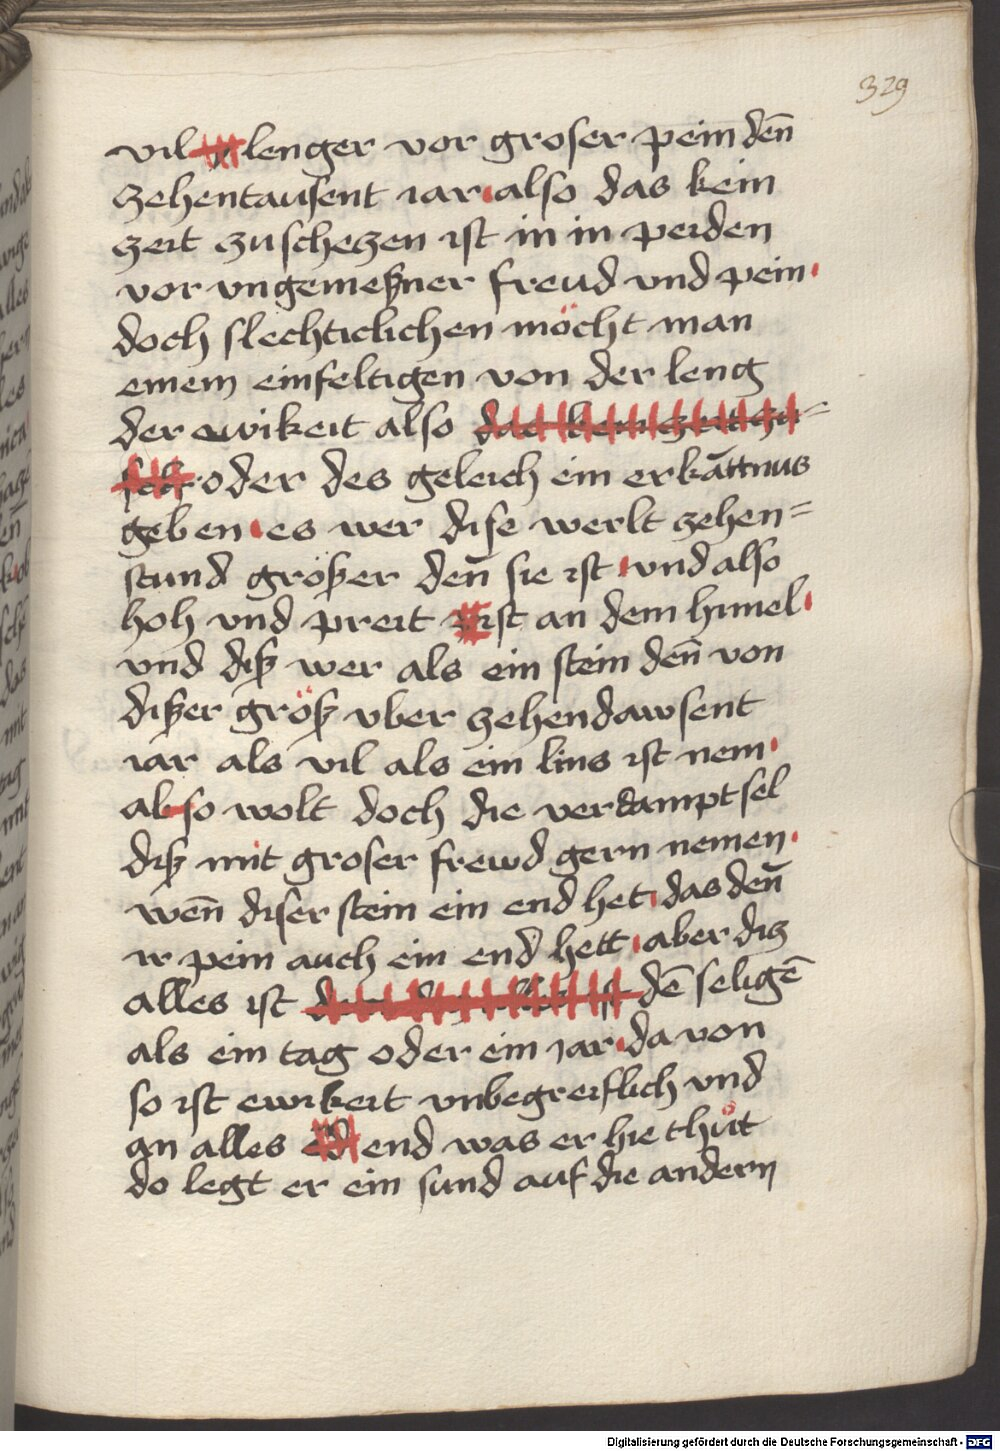 329
vil lenger vor groser pein den̄
zehentausent iar also das kein
zeit zuschetzen ist in in peiden
vor vngemeßner freud vnd pein
doch slechticlichen möcht man
einem einfeltigen von der leng
der ewikeit also das kein zeit zu=
sch oder des geleich ein erkāttnus
geben es wer dise werlt zehen=
stund größer den̄ sie ist vnd also
hoh vnd preit ist an dem himel
vnd diß wer als ein stein den̄ von
dißer größ vber zehendawsent
iar als vil als ein lins ist nem
also wolt doch die verdampt sel
diß mit groser frewd gern nemen
wen̄ diser stein ein end het das den̄
ir pein auch ein end hett aber diz
alles ist dē seligē
als ein tag oder ein jar da von
so ist ewikeit vnbegreiflich vnd
an alles ed end was er hie thůt
do legt er ein sund auf die andern
Digitalisierung gefördert durch die Deutsche Forschungsgemeinschaft - DFG